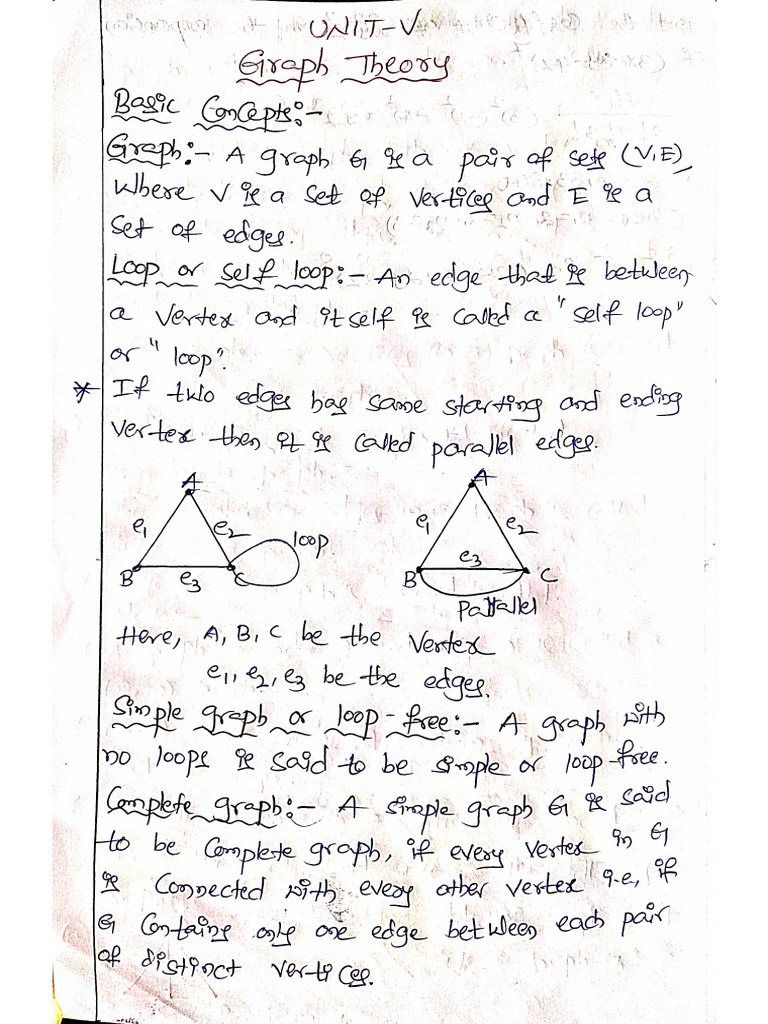 UNIT-V
Graph Theory
Basic Concepts:-
Graph:- A graph G is a pair of sets (V,E),
Where V is a set of vertices and E is a
set of edges.
Loop or self loop:- An edge that is between
a vertex and itself is called a "self loop"
or "loop".
* If two edges has same starting and ending
vertex then it is called parallel edges.
A A
e1 e2 loop e1 e2
B e3 C B e3 C
Parallel
Here, A, B, C be the vertex
e1, e2, e3 be the edges.
Simple graph or loop-free:- A graph with
no loops is said to be simple or loop-free.
Complete graph:- A simple graph G is said
to be complete graph, if every vertex in G
is connected with every other vertex i.e, if
G contains only one edge between each pair
of distinct vertices.